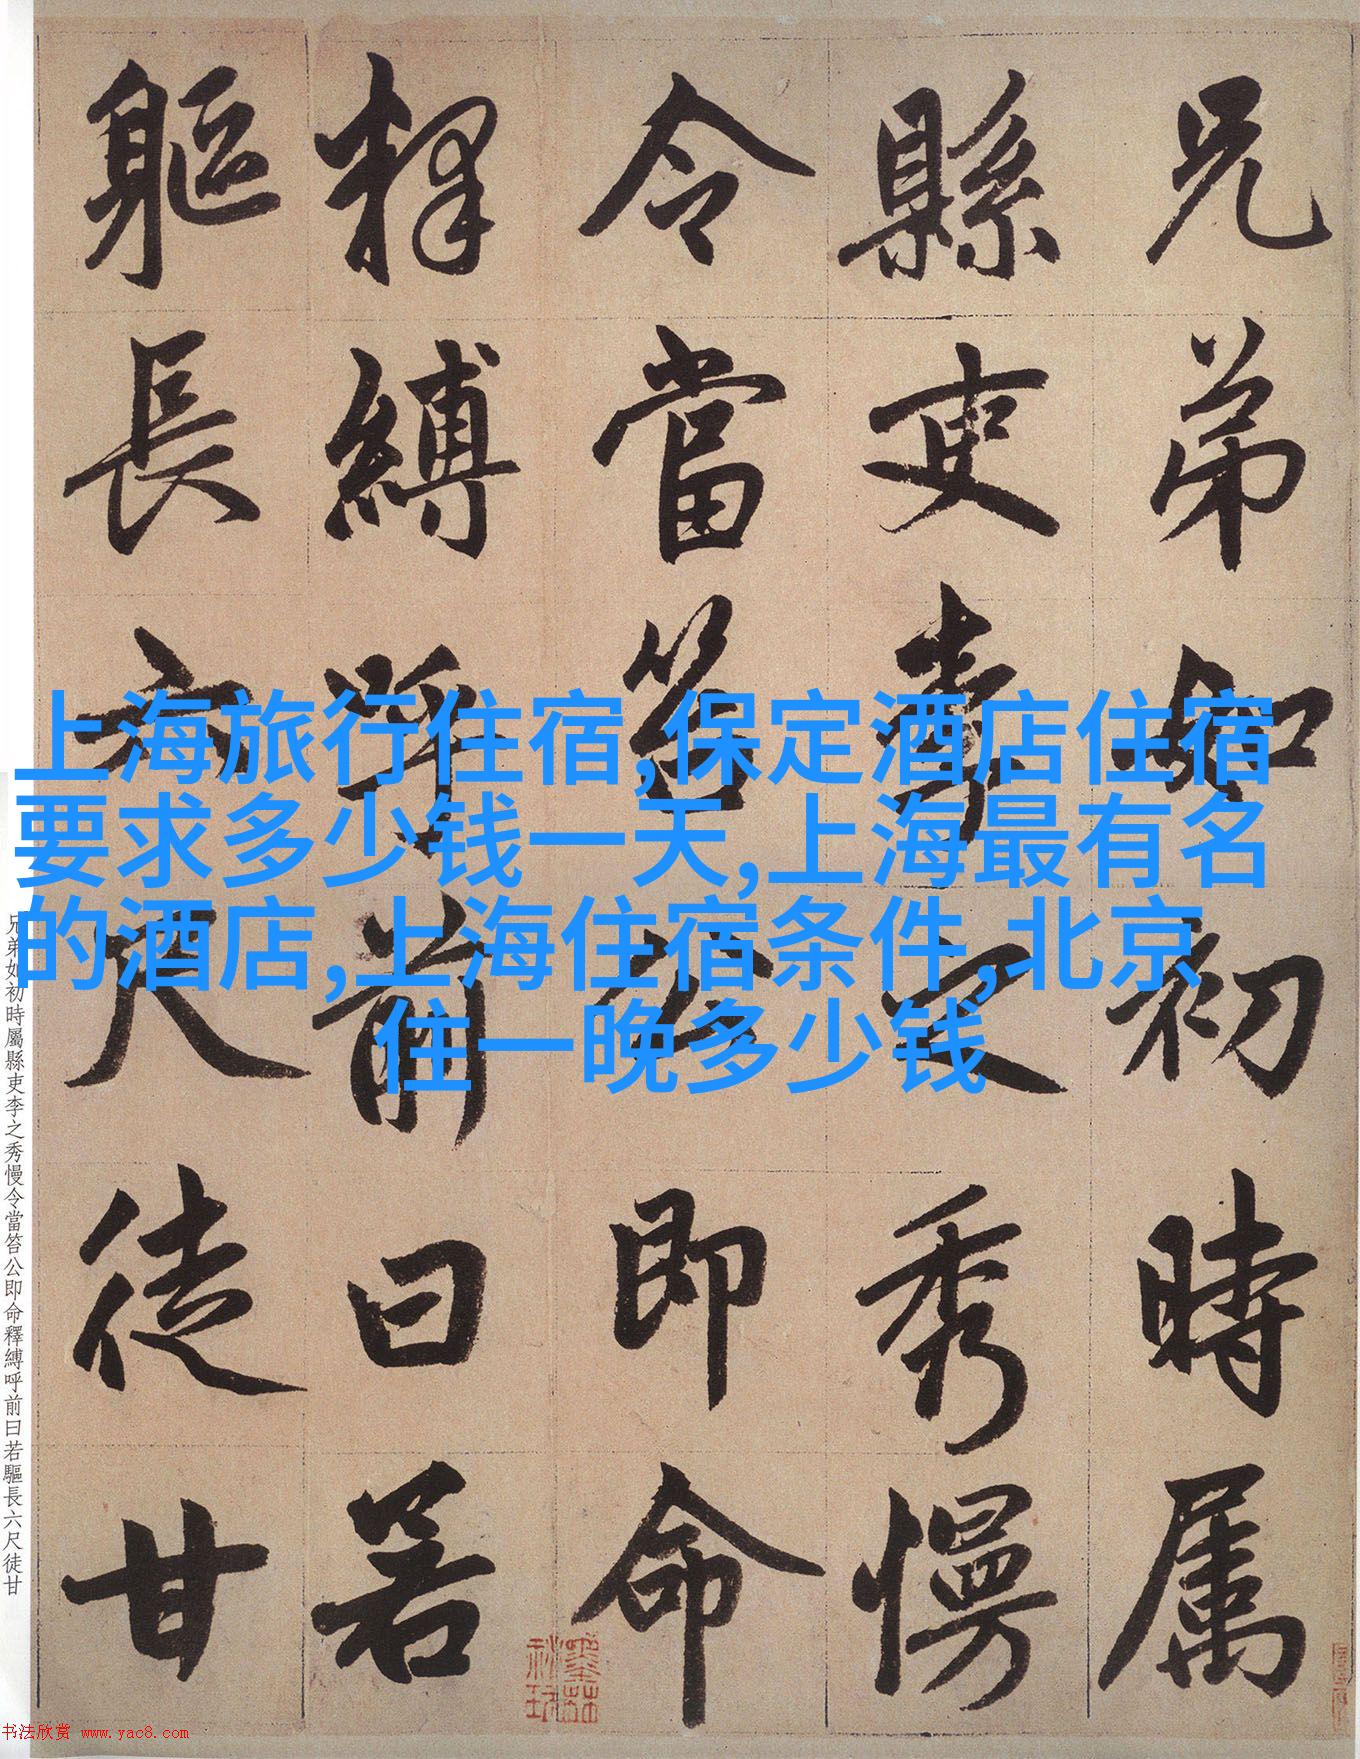 兄弟如初時属
縣吏李之秀慢
令當笞公即命
釋縛呼前曰若
軀長六尺徒甘
上海旅行住宿,保定酒店住宿
要求多少钱一天,上海最有名
的酒店,上海住宿条件,北京
住一晚多少钱
兄弟如初時屬縣吏李之秀慢令當笞公即命釋縛呼前曰若驅長六尺徒甘
书法欣赏 www.yac8.com